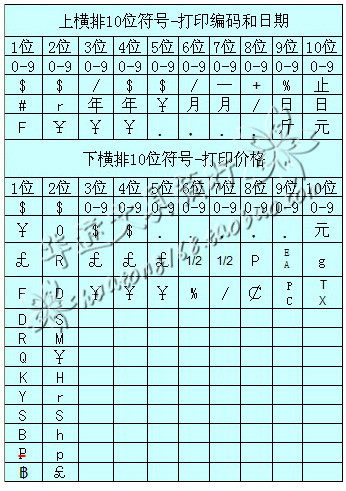 上横排10位符号-打印编码和日期
1位 2位 3位 4位 5位 6位 7位 8位 9位 10位
0-9 0-9 0-9 0-9 0-9 0-9 0-9 0-9 0-9 0-9
$ $ / $ $ / — + % 止
# r 年 年 ¥ 月 月 / 日 日
F ¥ ¥ ¥ . . . . 斤 元
下横排10位符号-打印价格
1位 2位 3位 4位 5位 6位 7位 8位 9位 10位
$ $ 0-9 0-9 0-9 0-9 0-9 0-9 0-9 0-9
¥ 0 $ $ . . . . . 元
£ R £ £ £ 1/2 1/2 P EA g
F D ¥ ¥ ¥ % / ₵ PC TX
D S
R M
Q ¥
K H
Y r
S S
B h
P p
฿ £